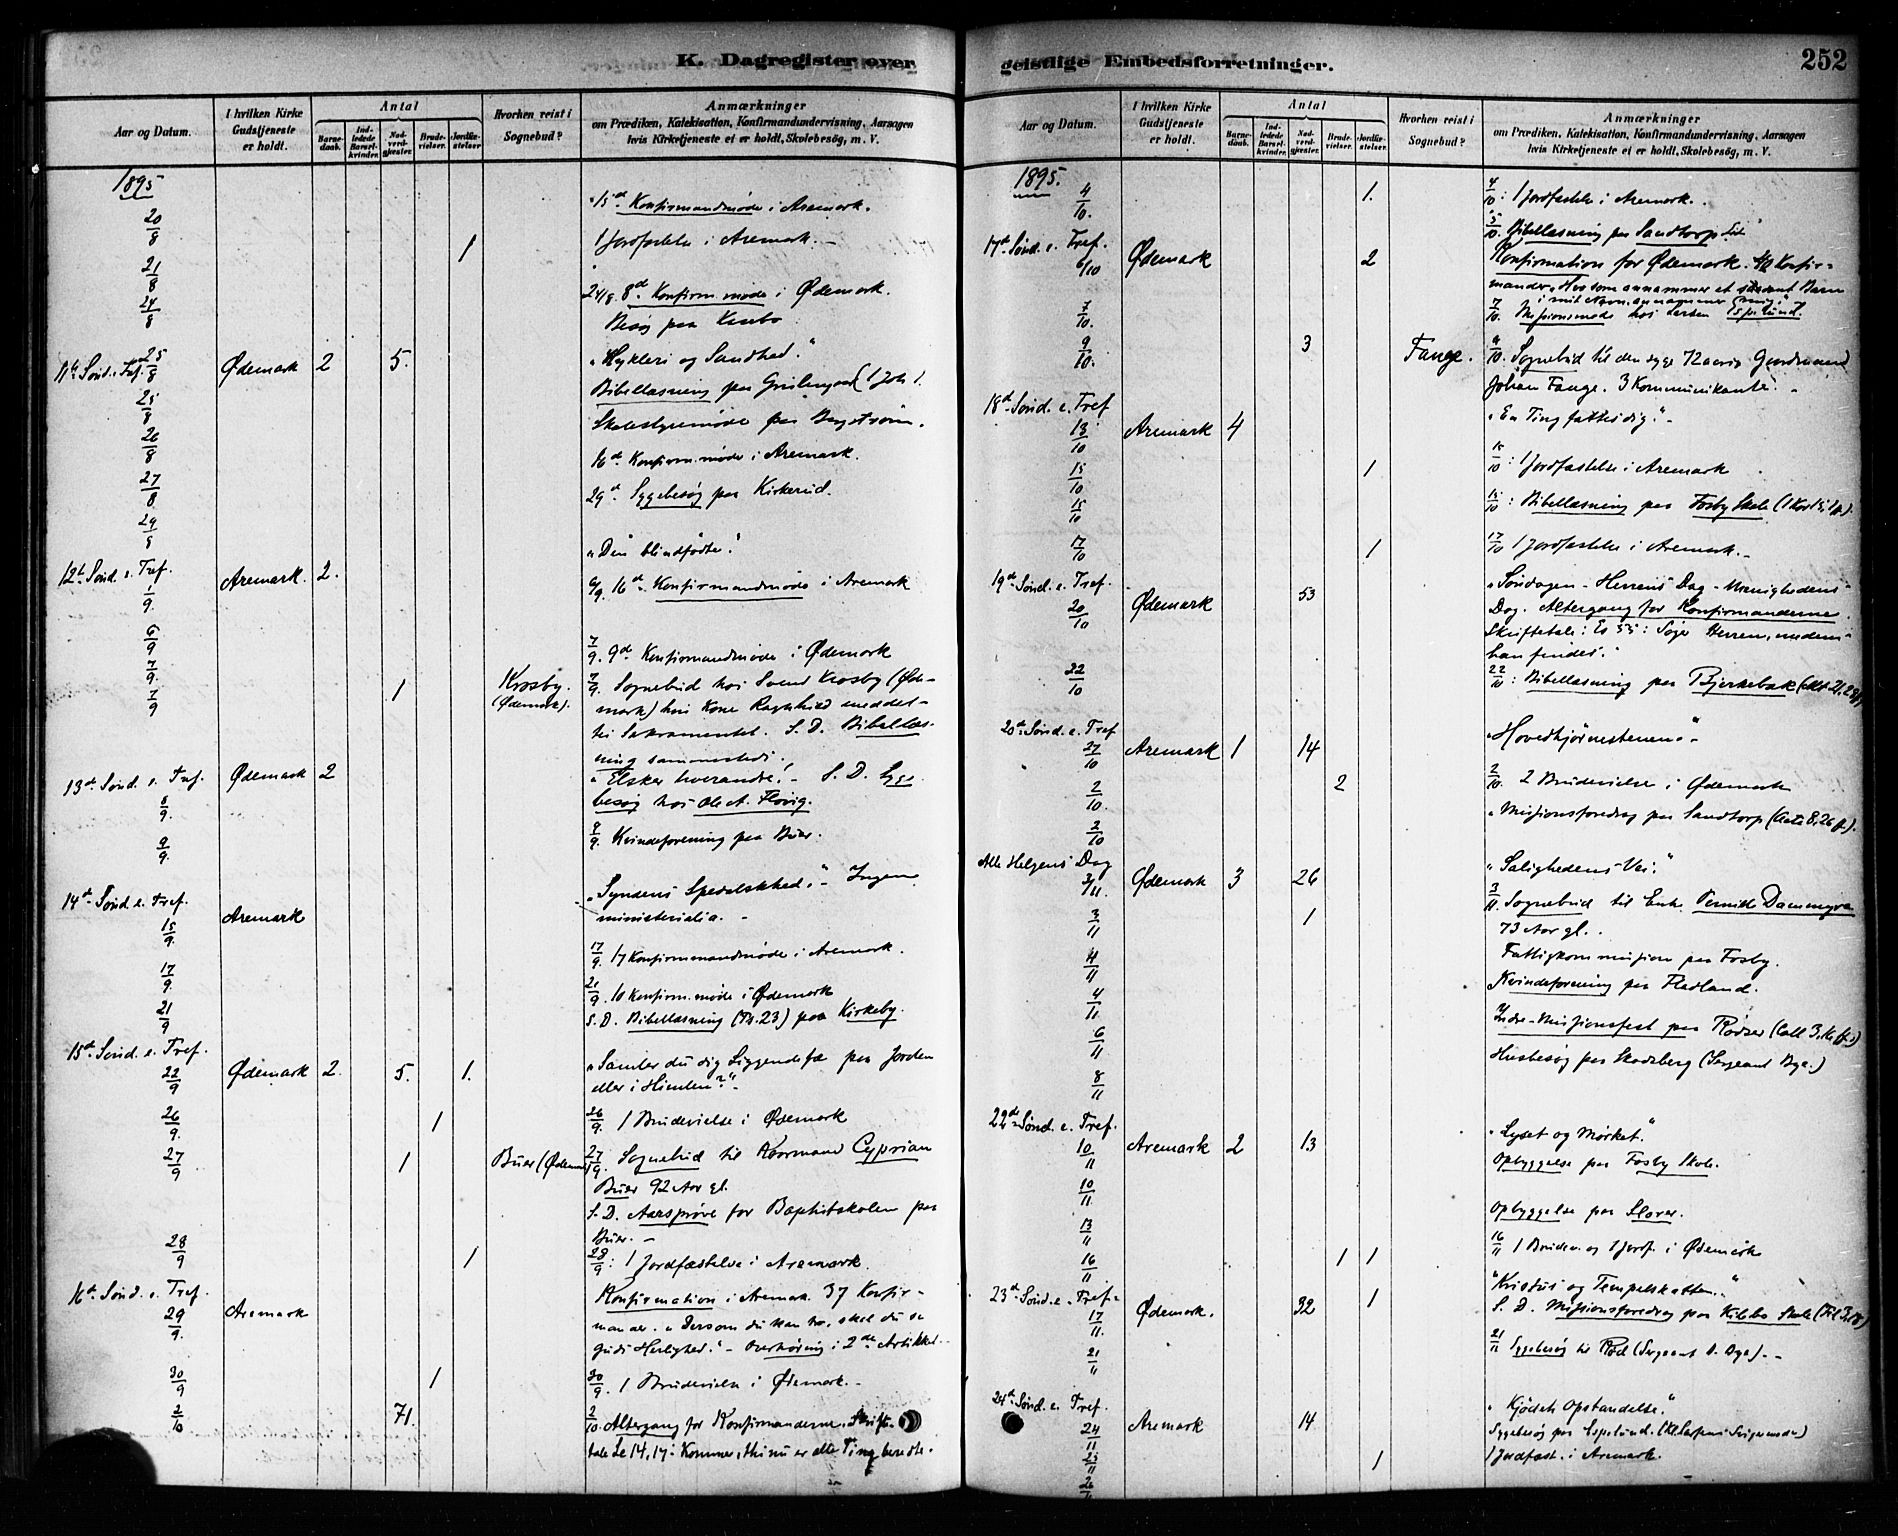 K. Dagregister over
Aar og Datum.
I hvilken Kirke Gudstjeneste er holdt.
Antal
Barnedaab.
Indledede Barselkvinder.
Nadverdgjester.
Brudevielser.
Jordfæstelser
Hvorhen reist i Sognebud?
Anmærkninger
om Prædiken, Katekisation, Konfirmandundervisning, Aarsagen
hvis Kirketjeneste ei er holdt, Skolebesøg, m. V.
1895
20/8 15de Konfirmandmøde i Aremark.
21/8 1 1 Jordfæstelse i Aremark.
24/8 24/8. 8de Konfirm.møde i Ødemark.
Besøg paa
11te Sønd. e. Tref. 25/8 Ødemark 2 5. "Hykleri og Sandhed."
25/8 Bibellæsning paa (1 Joh 1.
26/8 Skolestyremøde paa
27/8 16de Konfirm.møde i Aremark.
29/8 29de Sygebesøg paa Kirkerud.
12te Sønd. e. Tref. 1/9. Aremark. 2. "Den blindfødte."
6/9 6/9. 16de Konfirmandmøde i Aremark
7/9. 7/9. 9de Konfirmandmøde i Ødemark
7/9 1 Krosby. (Ødemark). 7/9. Sognebud hos Svend Krosby (Øde-
mark) hvis Kone Ragnhild meddel-
tes Sakramentet. S. D. Bibellæs-
ning sammesteds.
13de Sønd. e. Tref. 8/9. Ødemark 2 "Elsker hverandre!" S. D. Syge-
besøg hos Ole A.
9/9. 9/9. Kvindeforening paa Buer.
14de Sønd. e. Tref. 15/9. Aremark "Syndens Spedalskhed." Ingen
ministerialia.
17/9. 17/9. 17 Konfirmandmøde i Aremark.
21/9 21/9. 10 Konfirm.møde i Ødemark
S. D. Bibellæsning (Ps. 23) paa Kirkeby.
15de Sønd. e. Tref. 22/9 Ødemark 2. 5. 1. "Samler du dig Liggendefæ paa Jorden
eller i Himlen?"
26/9. 1 26/9. 1 Brudevielse i Ødemark
27/9 1 Buer (Ødemark) 27/9. Sognebud til Cyprian
Buer 92 Aar gl.
S. D. Aarsprøve for Baptistskolen paa
Buer.
28/9 1 28/9: 1 Jordfæstelse i Aremark.
16de Sønd. e. Tref. 29/9. Aremark Konfirmation i Aremark. 37 Konfir-
mander. "Dersom du kan tro, skal du se
Guds Herlighed." Overhøring i 2den Artikkel.
30/9 1 30/9. 1 Brudevielse i Ødemark.
2/10 71. 2/10. Altergang for Konfirmanderne. Skrifte-
tale Lc 14, 17: Kommer, thi nu er alle Ting beredte.
geistlige Embedsforretninger.
252
Aar og Datum.
I hvilken Kirke Gudstjeneste er holdt.
Antal
Barnedaab.
Indledede Barselkvinder.
Nadverdgjester.
Brudevielser.
Jordfæstelser
Hvorhen reist i Sognebud?
Anmærkninger
om Prædiken, Katekisation, Konfirmandundervisning, Aarsagen
hvis Kirketjeneste ei er holdt, Skolebesøg, m. V.
1895.
4/10. 1. 4/10: 1 Jordfæstelse i Aremark.
5/10. Bibellæsning paa Sandtorp
17de Sønd. e. Tref. 6/10 Ødemark 2 Konfirmation for Ødemark. Konfir-
mander. Hvo som annammer et saadant Barn
i mit Navn, annammer mig."
7/10. 7/10. Missionsmøde hos
9/10. 3 Fange. 9/10. Sognebud til den syge 72 aarige Gaardmand
Johan Fange. 3 Kommunikanter.
18de Sønd. e. Tref 13/10 Aremark 4 "En Ting fattes dig."
15/10 1 15/10: 1 Jordfæstelse i Aremark
15/10 15/10: Bibellæsning paa Fosby Skole
17/10 1 17/10 1 Jordfæstelse i Aremark.
19de Sønd. e. Tref. 20/10 Ødemark 53 "Søndagen – Herrens Dag – Menighedens
Dag. Altergang for Konfirmanderne.
Skriftetale: Es 55: Søger Herren, medens
han findes."
22/10 22/10: Bibellæsning paa Bjerkebæk
20de Sønd. e. Tref 27/10 Aremark 1 14 "Hovedhjørnestenen."
2/10. 2 2/10. 2 Brudevielser i Ødemark
2/10 "Missionsforedrag paa Sandtorp (Acta 8, 26 ff).
Alle Helgens Dag 3/11. Ødemark 3 26 "Salighedens Vei."
3/11 1 3/11. Sognebud til Enke Dammyra
73 Aar gl.
4/11 Fattigkommission paa Fosby.
4/11 Kvindeforening paa
6/11 Indre-Missionsfest paa
8/11 Husbesøg paa Skodsberg (Sergeant Bye.)
22de Sønd. e. Tref. 10/11 Aremark 2 13 "Lyset og Mørket."
10/11 Opbyggelse paa Fosby Skole.
13/11 Opbyggelse paa
16/11 1 1 16/11 1 Brudev. og 1 Jordf. i Ødemark
23de Sønd. e. Tref. 17/11. Ødemark. 32 1 "Kristus og Tempelskatten."
S. D. Missionsforedrag paa Skole
21/11 21/11 Sygebesøg til (Sergeant Bye).
24de Sønd. e. Tref. 24/11 Aremark 14 "Kjødets Opstandelse."
Sygebesøg paa
25/11 1 1 Jordfæst. i Aremark.
26/11